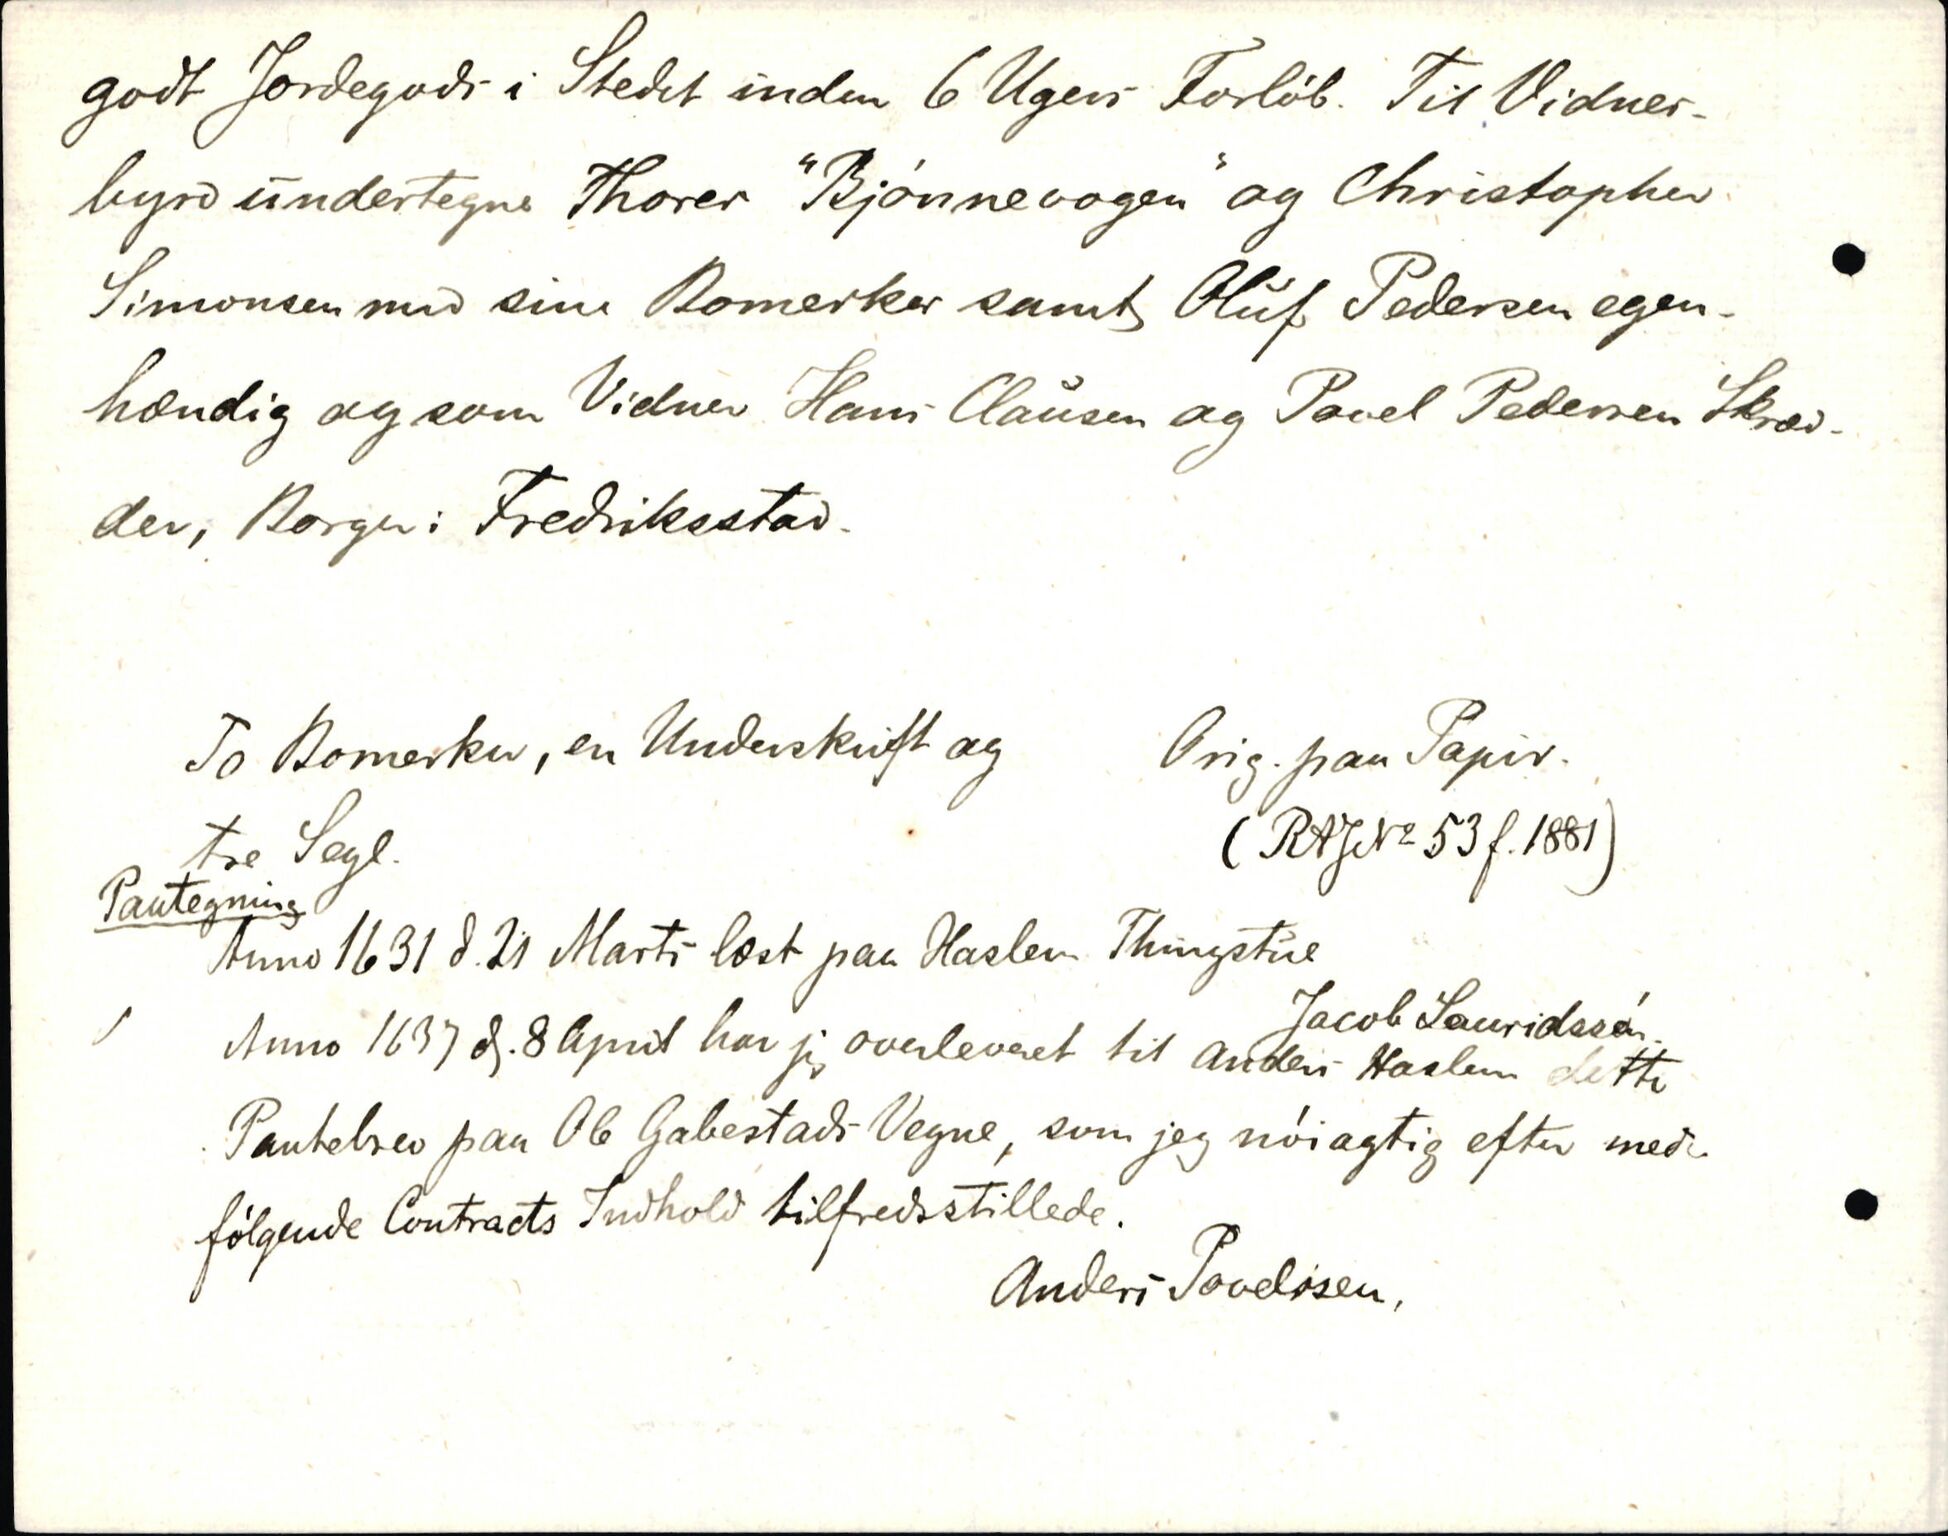 godt Jordegods i Stedet inden 6 Ugers Forløb. Til Vidner-
byrd undertegne Thorer "Bjønnevogen" og Christopher
Simonsen med sine Bomerker samt Oluf Pedersen egen-
hændig og som Vidner Hans Clausen og Povel Pedersen Skræd-
der, Borger i Fredriksstad.
To Bomerker, en Underskrift og
tre Segl.
Orig. paa Papir.
(RAJ No 53 f. 1881)
Paategning
Anno 1631 d. 21 Marts læst paa Haslem Thingstue
Jacob Lauridssøn
Anno 1637 d. 8 April har jeg overleveret til Anders Haslem dette
Pantebrev paa Ole Gabestads Vegne, som jeg nøiagtig efter med-
følgende Contracts Indhold tilfredsstillede.
Anders Povelssen,